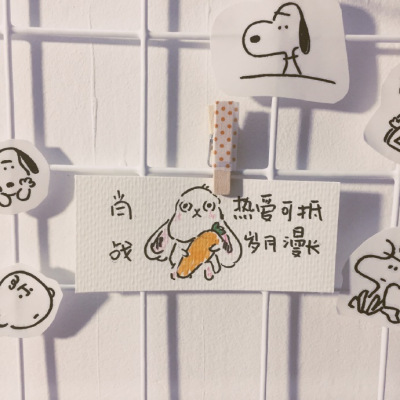 肖战
热爱可抵
岁月漫长